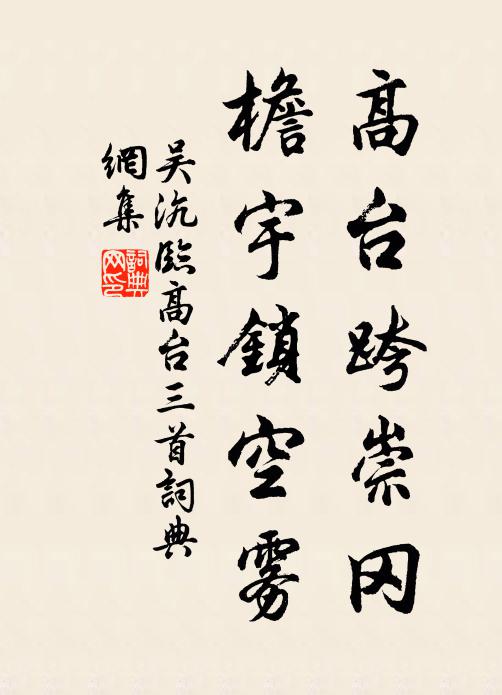 高台跨崇冈
檐宇鎖空雾
吴沆臨高台三首詞典
網集
詞典
网印